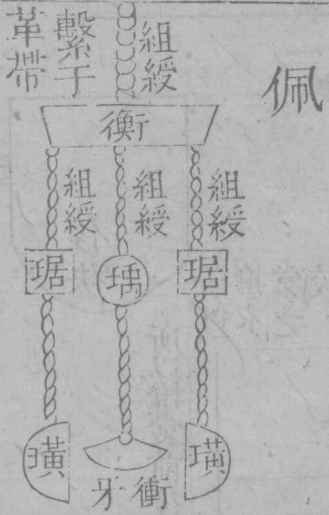 佩
組綬
繫于
革帶
衡
組綬
組綬
組綬
琚
瑀
琚
璜
衝牙
璜